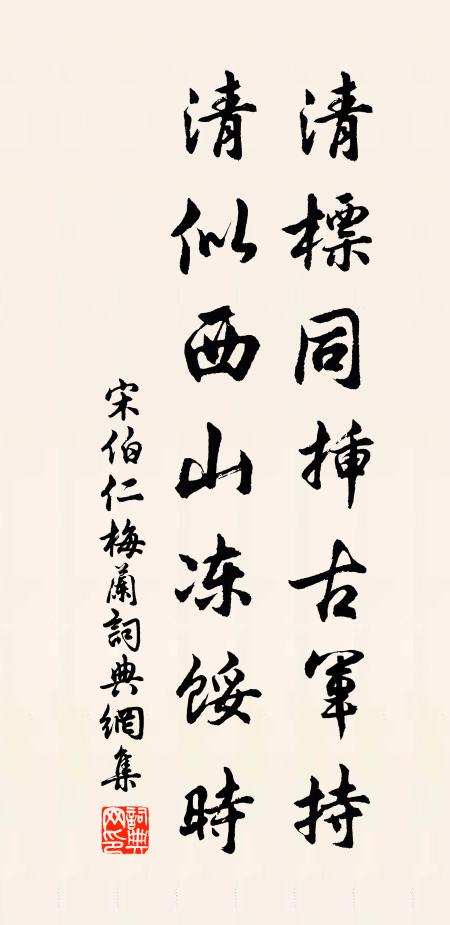 清標同挿古軍持
清似西山冻餒時
宋伯仁梅蘭詞典網集
詞典網印